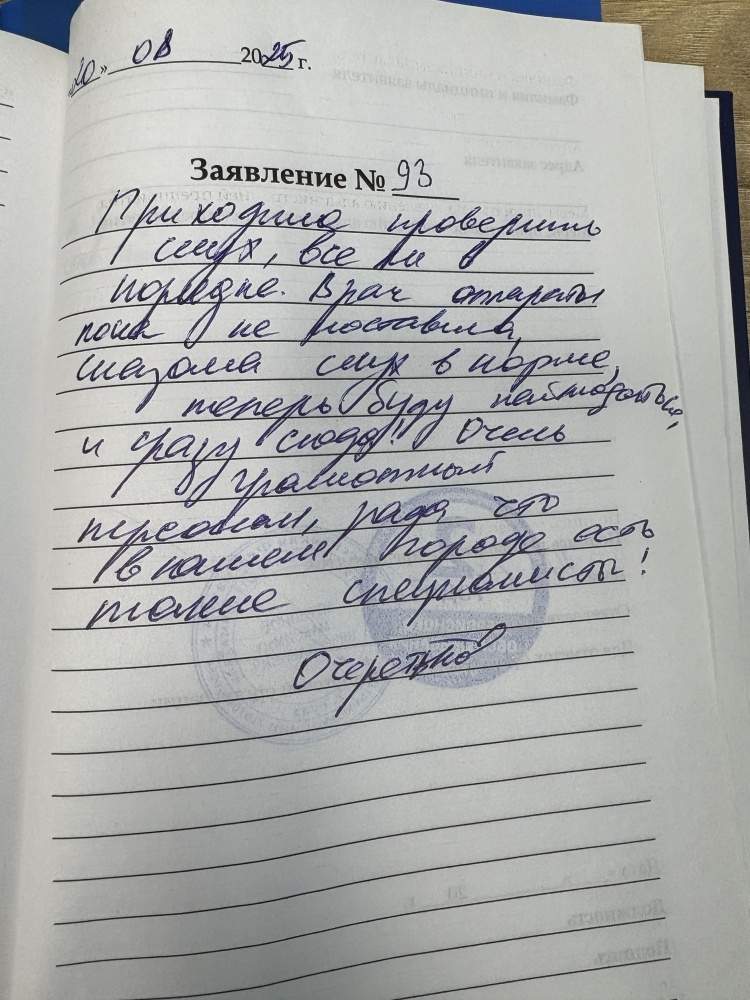 20» 08 2025 г.
Заявление № 93
Приходила проверить
слух, все ли в
порядке. Врач аппараты
пока не поставила,
сказала слух в норме,
теперь буду наблюдаться,
и сразу сюда! Очень
грамотный
персонал, рада что
в нашем городе есть
такие специалисты!
Очеретько